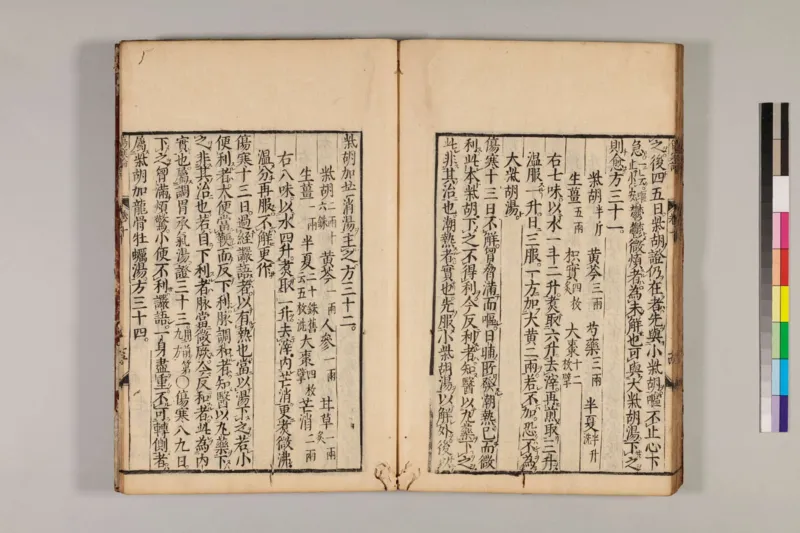 之後四五日柴胡證仍在者先與小柴胡嘔不止心下
急鬱鬱微煩者為未解也可與大柴胡湯下之
則愈方三十一
柴胡半斤 黃芩三兩 芍藥三兩 半夏半升洗
生薑五兩 枳實四枚炙 大棗十二枚擘
右七味以水一斗二升煑取六升去滓再煎取三升
溫服一升日三服一方加大黃二兩若不加恐不為
大柴胡湯
傷寒十三日不解胷脅滿而嘔日晡所發潮熱已而微
利此本柴胡下之不得利今反利者知醫以丸藥下之
此非其治也潮熱者實也先服小柴胡湯以解外後以
柴胡加芒消湯主之方三十二。
柴胡二兩十六銖 黃芩一兩 人參一兩 甘草一兩炙
生薑一兩 半夏二十銖舊云五枚洗 大棗四枚擘 芒消二兩
右八味以水四升煑取二升去滓內芒消更煑微沸
溫分再服不解更作
傷寒十三日過經讝語者以有熱也當以湯下之若小
便利者大便當鞕而反下利脉調和者知醫以丸藥下
之非其治也若自下利者脉當微厥今反和者此為內
實也屬調胃承氣湯證三十三〇傷寒八九日
下之胷滿煩驚小便不利讝語一身盡重不可轉側者
屬柴胡加龍骨牡蠣湯方三十四。